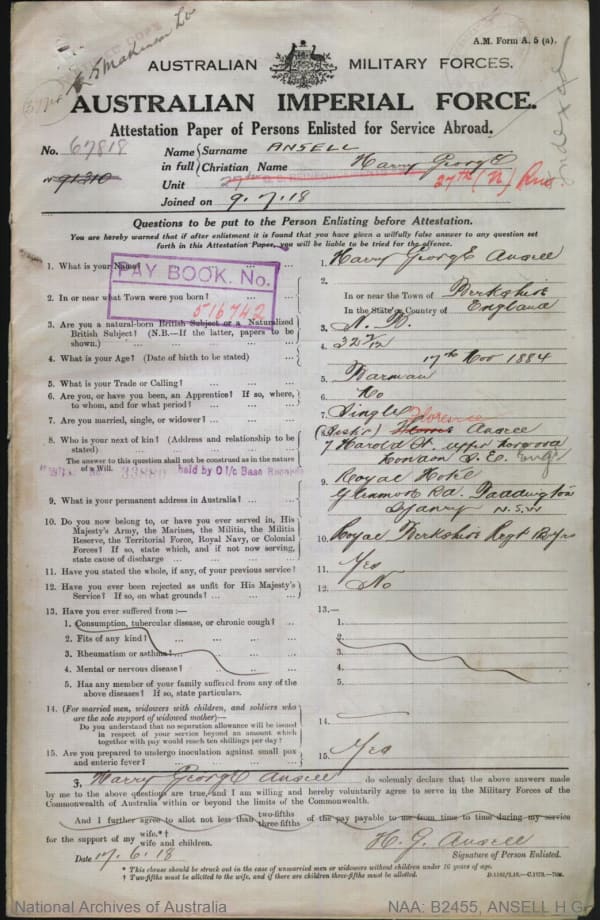 A.M. Form A. 5 (a).
AUSTRALIAN MILITARY FORCES.
AUSTRALIAN IMPERIAL FORCE.
Attestation Paper of Persons Enlisted for Service Abroad.
No. 67818
Name in full
Surname ANSELL
Christian Name Harry George
91310
Unit 27th (N) Rns.
Joined on 9.7.18
Indexed
Questions to be put to the Person Enlisting before Attestation.
You are hereby warned that if after enlistment it is found that you have given a wilfully false answer to any question set
forth in this Attestation Paper, you will be liable to be tried for the offence.
PAY BOOK. No.
516742
1. What is your Name? ... ... ...
1. Harry George Ansell
2. In or near what Town were you born? ... ...
2. In or near the Town of Berkshire
In the State or Country of England
3. Are you a natural-born British Subject or a Naturalized
British Subject? (N.B.—If the latter, papers to be
shown.) ... ... ...
3. N. B.
4. What is your Age? (Date of birth to be stated) ...
4. 32 7/12 17th Nov 1884
5. What is your Trade or Calling? ... ...
5. Barman
6. Are you, or have you been, an Apprentice? If so, where,
to whom, and for what period? ... ... ...
6. No
7. Are you married, single, or widower? ... ...
7. Single
8. Who is your next of kin? (Address and relationship to be
stated) ... ... ...
The answer to this question shall not be construed as in the nature
of a Will.
held by O I/c Base Records
8. (Sister) Florence Ansell
7 Harold St. Upper Norwood
London S.E. Eng
9. What is your permanent address in Australia? ...
9. Royal Hotel
Glenmore Rd. Paddington
Sydney N.S.W
10. Do you now belong to, or have you ever served in, His
Majesty's Army, the Marines, the Militia, the Militia
Reserve, the Territorial Force, Royal Navy, or Colonial
Forces? If so, state which, and if not now serving,
state cause of discharge ... ... ...
10. Royal Berkshire Regt 12 yrs
11. Have you stated the whole, if any, of your previous service?
11. Yes
12. Have you ever been rejected as unfit for His Majesty's
Service? If so, on what grounds? ... ...
12. No
13. Have you ever suffered from :—
13.—
1. Consumption, tubercular disease, or chronic cough? ..
1.
2. Fits of any kind? ... ... ...
2.
3. Rheumatism or asthma? ... ... ...
3.
4. Mental or nervous disease? ... ... ...
4.
5. Has any member of your family suffered from any of the
above diseases? If so, state particulars.
5.
14. (For married men, widowers with children, and soldiers who
are the sole support of widowed mother)—
Do you understand that no separation allowance will be issued
in respect of your service beyond an amount which
together with pay would reach ten shillings per day?
14.
15. Are you prepared to undergo inoculation against small pox
and enteric fever? ... ... ...
15. Yes
I, Harry George Ansell do solemnly declare that the above answers made
by me to the above questions are true, and I am willing and hereby voluntarily agree to serve in the Military Forces of the
Commonwealth of Australia within or beyond the limits of the Commonwealth.
And I further agree to allot not less than two-fifths three-fifths of the pay payable to me from time to time during my service
for the support of my wife.*† wife and children.
H. G. Ansell
Date 17.6.18
Signature of Person Enlisted.
* This clause should be struck out in the case of unmarried men or widowers without children under 16 years of age.
† Two-fifths must be allotted to the wife, and if there are children three-fifths must be allotted.
National Archives of Australia
NAA: B2455, ANSELL H G